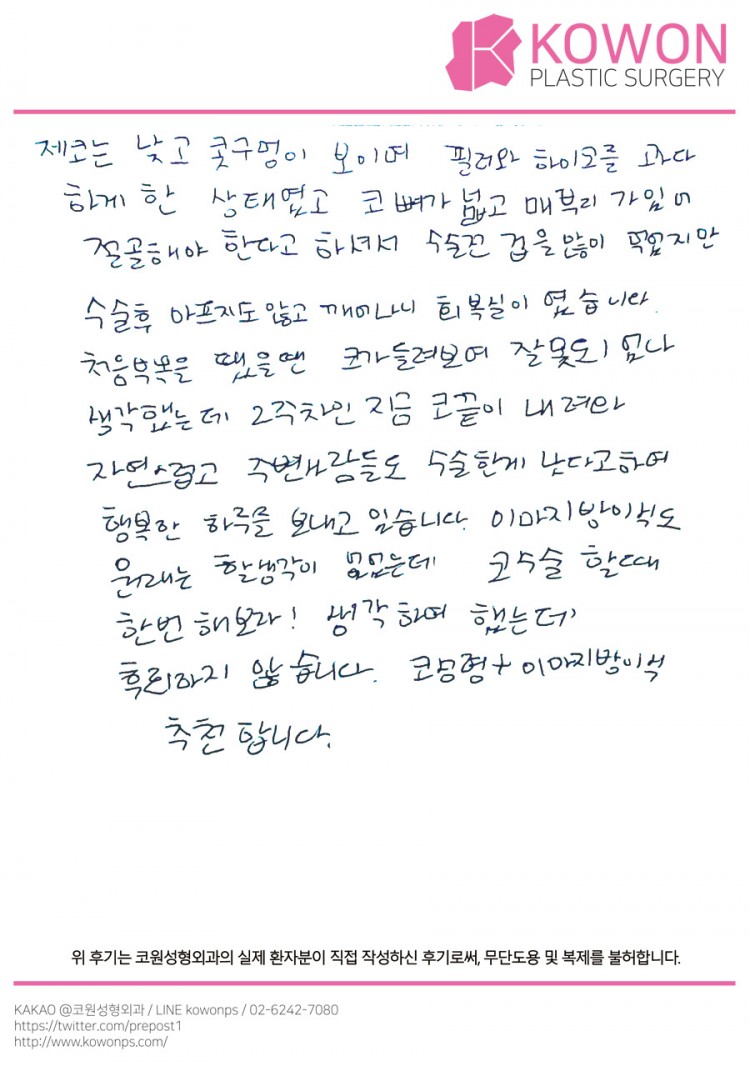 KOWON
PLASTIC SURGERY
제코는 낮고 콧구멍이 보이며 필러와 하이코를 과다
하게 한 상태였고 코뼈가 넓고 매부리가 있어
절골해야 한다고 하셔서 수술전 겁을 많이 먹었지만
수술후 아프지도 않고 깨어나니 회복실이였습니다
처음부목을 땠을땐 코가들려보여 잘못되었나
생각했는데 2주차인 지금 코끝이 내려와
자연스럽고 주변사람들도 수술한게 낫다고하여
행복한 하루를 보내고 있습니다. 이마지방이식도
원래는 할생각이 없었는데 코수술 할때
한번 해보자! 생각하여 했는데
후회하지 않습니다. 코성형+이마지방이식
추천 합니다.
위 후기는 코원성형외과의 실제 환자분이 직접 작성하신 후기로써, 무단도용 및 복제를 불허합니다.
KAKAO @코원성형외과 / LINE kowonps / 02-6242-7080
https://twitter.com/prepost1
http://www.kowonps.com/